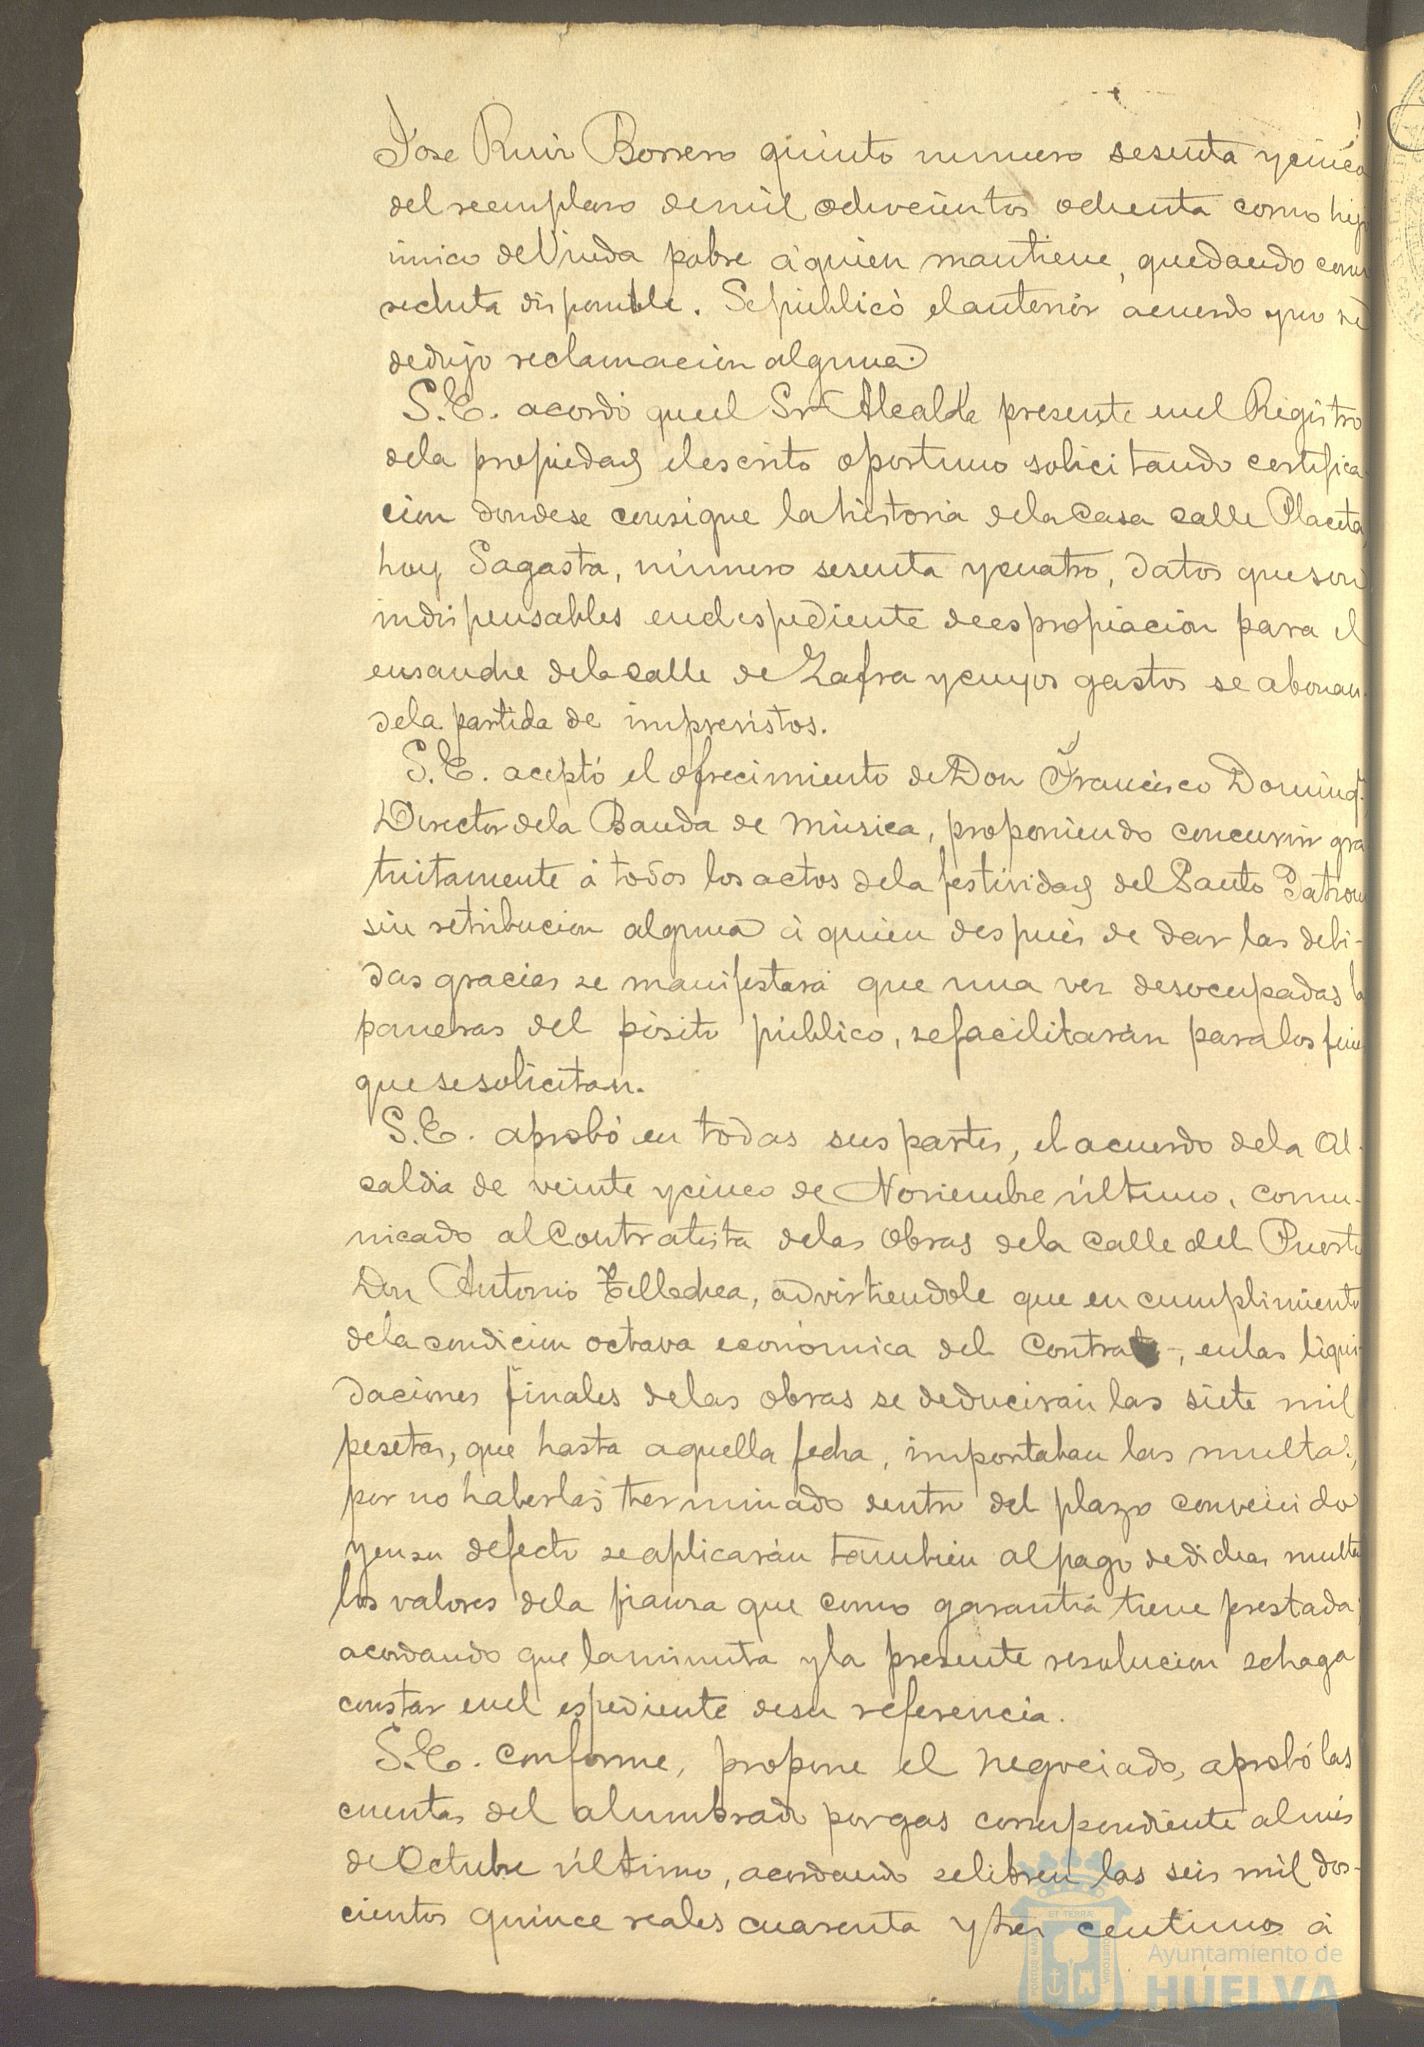 Jose Ruiz Borrero quinto numero sesenta y cinco
del reemplazo de mil ochocientos ochenta como hijo
único de Viuda pobre á quien mantiene, quedando como
recluta disponible. Se publicó el anterior acuerdo y no se
dedujo reclamacion alguna.
S.E. acordó que el Sr Alcalde presente en el Registro
de la propiedad el escrito oportuno solicitando certifica-
cion donde se consigne la historia de la Casa calle Placeta,
hoy Sagasta, número sesenta y cuatro, datos que son
indispensables en el espediente de espropiación para el
ensanche de la calle de Zafra y cuyos gastos se abonan
de la partida de imprevistos.
S.E. aceptó el ofrecimiento de Don Francisco Doming.
Director de la Banda de Música, proponiendo concurrir gra
tuitamente á todos los actos de la festividad del Santo Patron
sin retribucion alguna á quien después de dar las debi-
das gracias se manifestará que una vez desocupadas la
paneras del pósito público, se facilitarán para los fines
que se solicitan.
S.E. aprobó en todas sus partes, el acuerdo de la Al-
caldia de veinte y cinco de Noviembre último, comu-
nicado al Contratista de las Obras de la calle del Puerto
Don Antonio Tellechea, advirtiendole que en cumplimiento
de la condicion octava económica del Contrato, en las liqui-
daciones finales de las obras se deducirán las siete mil
pesetas, que hasta aquella fecha, importaban las multas,
por no haberlas terminado dentro del plazo convenido
y en su defecto se aplicarán tambien al pago de dichas multas
los valores de la fianza que como garantía tiene prestada;
acordando que la minuta y la presente resolucion se haga
constar en el espediente de su referencia.
S.E. conforme, propone el negociado, aprobó las
cuentas del alumbrado por gas correspondiente al mes
de Octubre último, acordando se libren las seis mil dos-
cientos quince reales cuarenta y tres centimos á
Ayuntamiento de
HUELVA